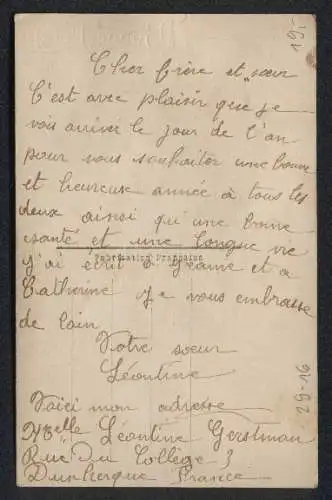 19-
Cher frère et sœur
C'est avec plaisir que je
vois arriver le jour de l'an
pour vous souhaiter une bonne
et heureuse année à tous les
deux ainsi qu'une bonne
santé et une longue vie
Fabrication Française
j'ai écrit à Jeanne et a
Catherine Je vous embrasse
de loin
Votre sœur
Léontine
Voici mon adresse
Melle Léontine Gerstman
Rue Du Collège 3
Dunkerque France
29-16